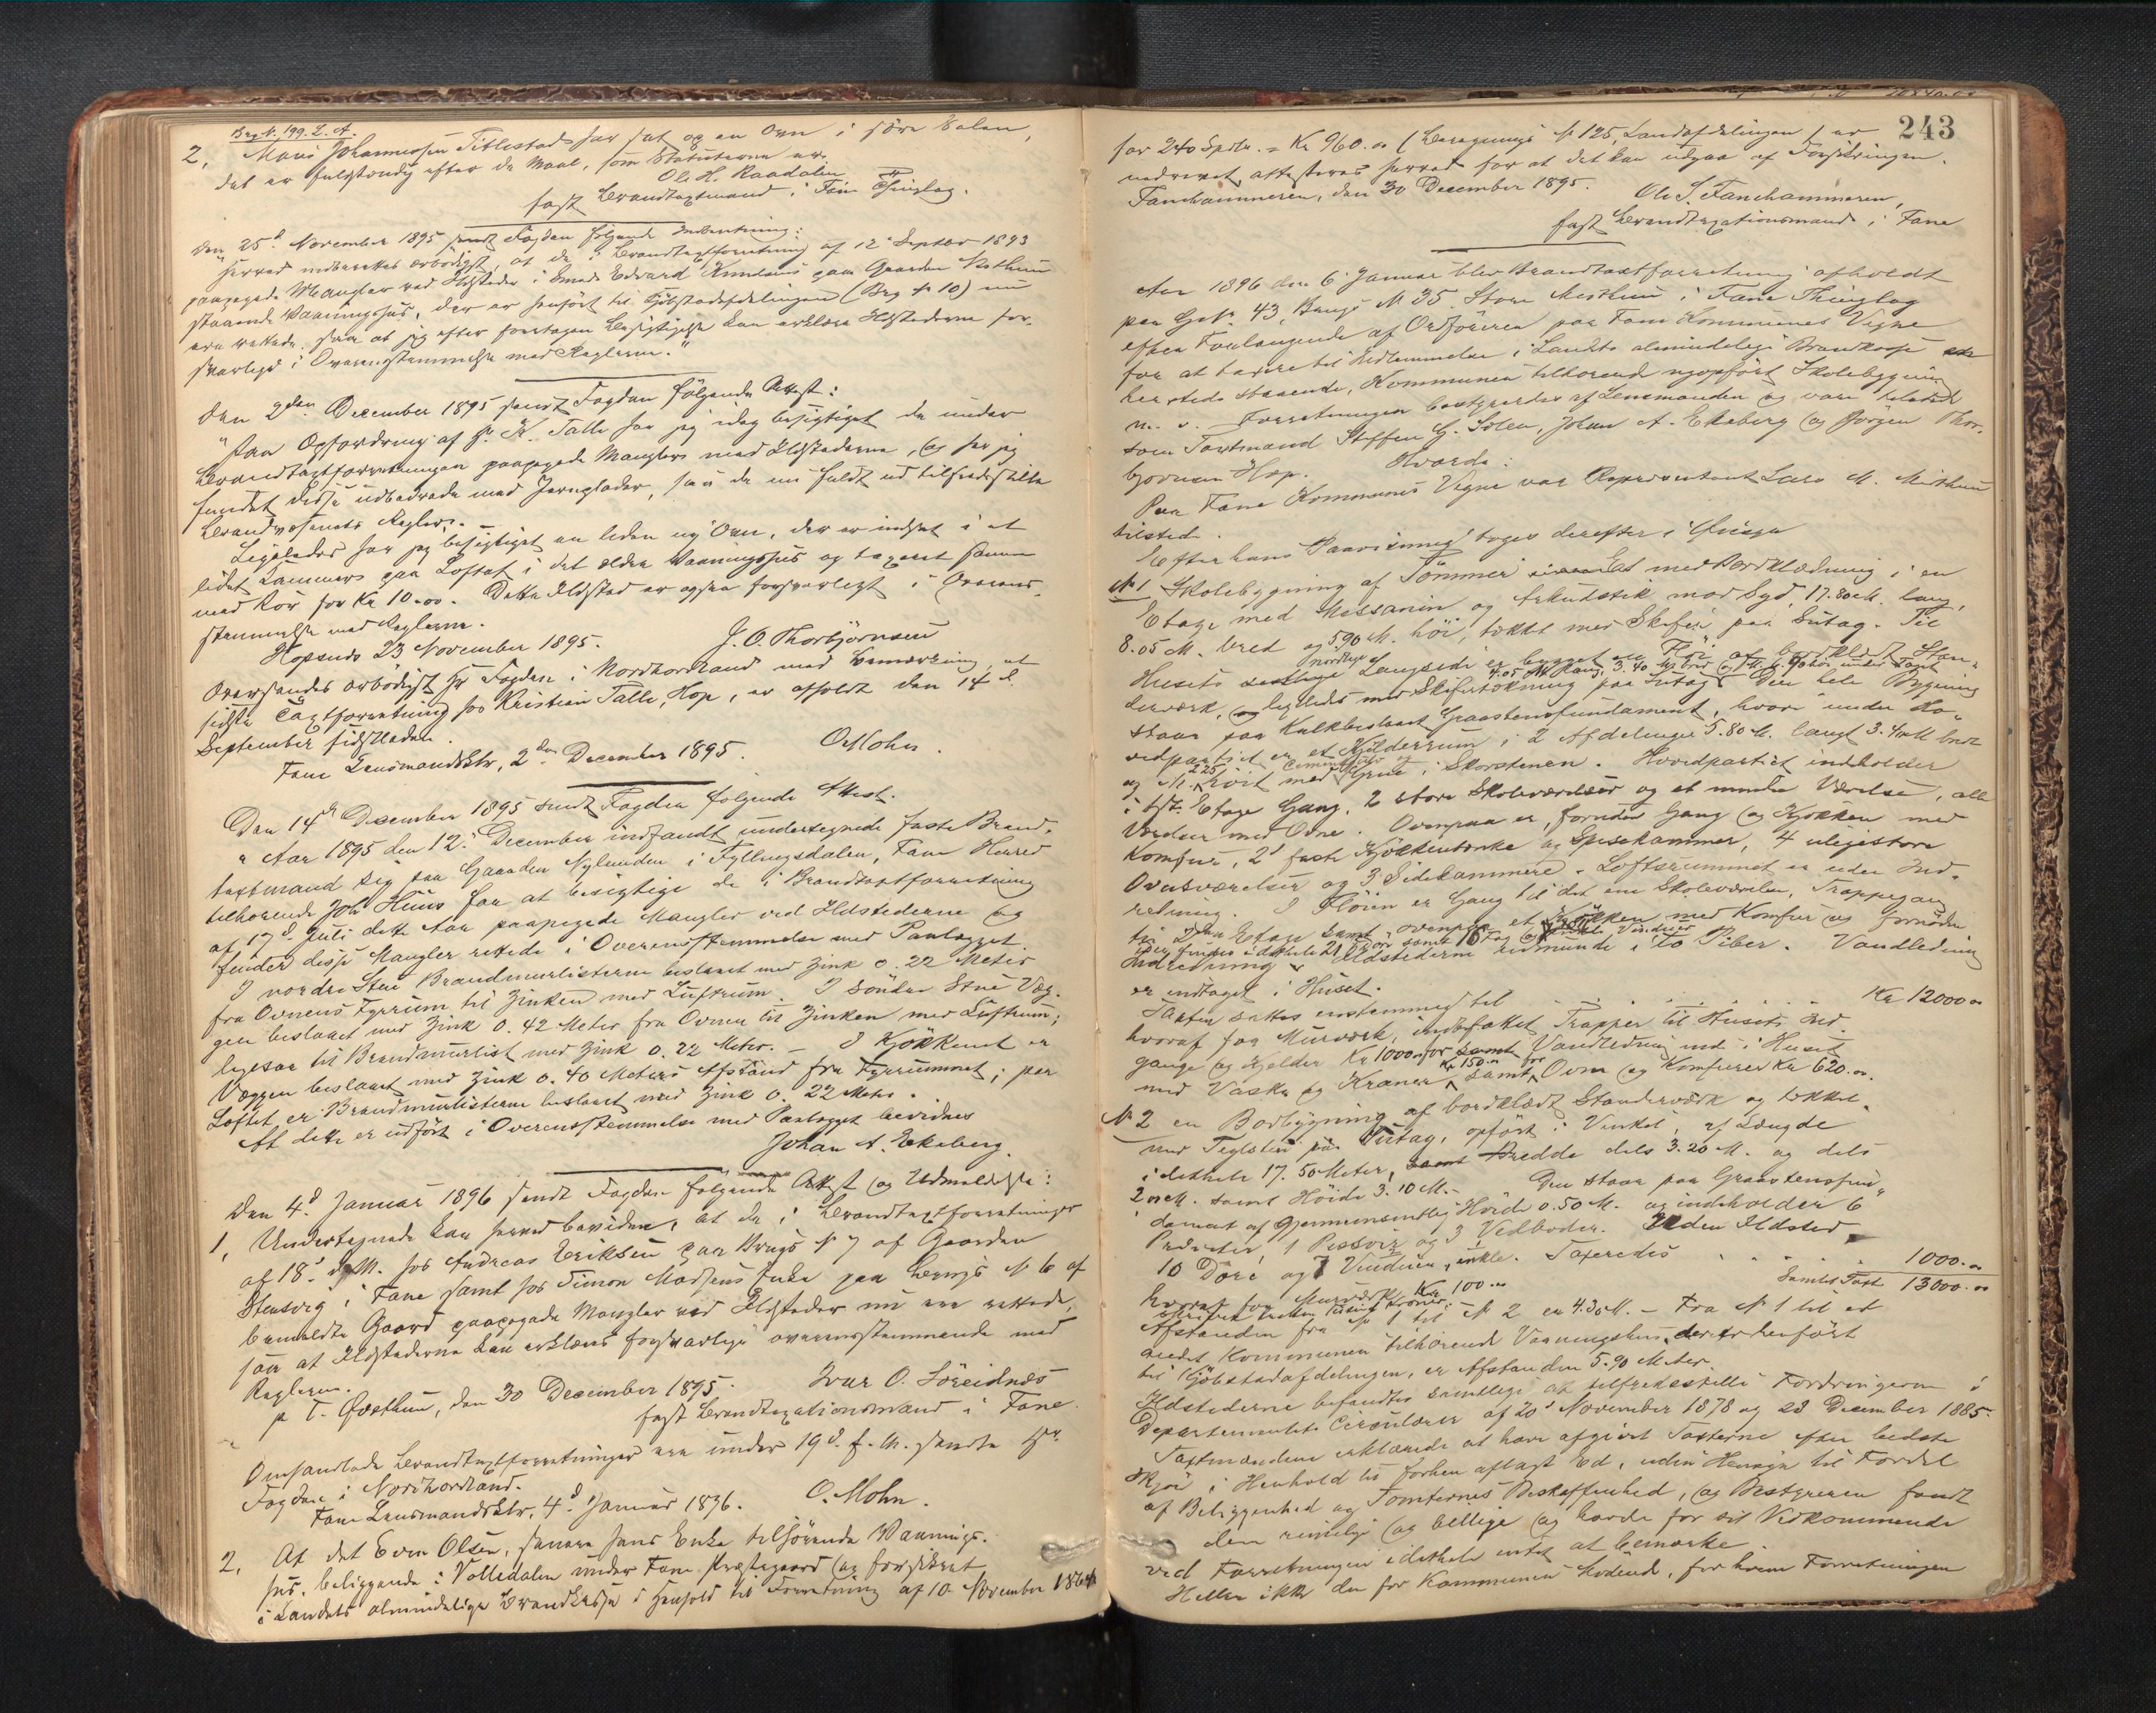 Brg N. 199. L. A.
2, Mons Johannessen Titlestad har sat op en Ovn i söre Salen,
det er fuldstændig efter de Maal, som Statuterne er.
Ole H. Raadalen
fast Brandtaxtmand i Fane Thinglag.
Den 25de November 1895 sendt Fogden følgende Indberetning:
"Herved indberettes ærbødigst, at de i Brandtaxtforretning af 12 Septbr 1893
paapegede Mangler ved Ildsteder i Smed Edvard Knudsens paa Gaarden
staaende Vaaningshus, der er henført til Kjøbstadafdelingen (Brg N 10) nu
ere rettede, saa at jeg efter foretagen Besigtigelse kan erklære Ildstederne for-
svarlige i Overensstemmelse med Reglerne."
Den 2den December 1895 sendt Fogden følgende Attest:
"Paa Opfordring af Hr. K. Talle har jeg idag besigtiget de under
Brandtaxtforretningen paapegede Mangler med Ildstederne, og har jeg
fundet disse udbedrede med Jernplader, saa de nu fuldt ud tilfredsstiller
Brandvæsenets Regler.
Ligeledes har jeg besigtiget en liden ny Ovn, der er indsat i et
lidet Kammers paa Loftet i det ældre Vaaningshus og taxeret samme
med Rör for Kr 10.00. Dette Ildsted er ogsaa forsvarligt i Overens-
stemmelse med Reglerne.
Hopsnes 23 November 1895. J. O. Thorbjørnsen
Oversendes ærbødigst Hr Fogden i Nordhordland med Bemærkning, at
sidste Taxtforretning hos Kristian Talle, Hop, er afholdt den 14 d.
September sidstleden.
Fane Lensmandsktr, 2den December 1895. O Mohn.
Den 14de December 1895 sendt Fogden følgende Attest.
"Aar 1895 den 12. December indfandt undertegnede faste Brand-
taxtmand sig paa Gaarden Nylunden i Fyllingsdalen, Fane Herred
tilhørende Joh Huus for at besigtige de i Brandtaxtforretning
af 17d Juli dette Aar paapegede Mangler ved Ildstederne og
finder disse Mangler rettede i Overensstemmelse med Paalægget.
I nordre Stue Brandmurlisterne beslaaet med Zink 0.22 Meter
fra Ovnens Fyrrum til Zinken med Luftrum. I söndre Stue Væg-
gen beslaaet med Zink 0.42 Meter fra Ovnen til Zinken med Luftrum;
ligesaa til Brandmurlist med Zink 0.22 Meter. – I Kjøkkenet er
Væggen beslaaet med Zink 0.40 Meters Afstand fra Fyrrummet; paa
Loftet er Brandmurlisterne beslaaet med Zink 0.22 Meter.
At dette er udført i Overensstemmelse med Paalægget bevidnes
Johan A. Ekeberg.
Den 4d Januar 1896 sendt Fogden følgende Attest og Udmeldelse:
1, Undertegnede kan herved bevidne, at de i Brandtaxtforretninger
af 18d d. M. hos Andreas Eriksen paa Brugs N 7 af Gaarden
Stensvig i Fane samt hos Simon Madsens Enke paa Brugs N 6 af
bemeldte Gaard paapegede Mangler ved Ildsteder nu ere rettede,
saa at Ildstederne kan erklæres forsvarlige overensstemmende med
Reglerne.
p T. Øvsthun, den 30 December 1895. Ivar O. Söreidnæs
fast Brandtaxationsmand i Fane.
Omhandlede Brandtaxtforretninger ere under 19d f. M. sendte Hr.
Fogden i Nordhordland.
Fane Lensmandsktr, 4d Januar 1896. O. Mohn.
2. At det Even Olsen, senere hans Enke tilhörende Vaanings-
hus, beliggende i Volledalen under Fane Præstegaard og forsikret
i Landets almindelige Brandkasse i Henhold til Forretning af 10 November 1864
243
for 240 Spdlr. = Kr 960.00 (Beregnings N 125, Landafdelingen) er
nedrevet, attesteres herved for at det kan udgaa af Forsikringen.
Fanehammeren, den 30 December 1895. Ole J. Fanehammeren,
fast Brandtaxationsmand i Fane
Aar 1896 den 6 Januar blev Brandtaxtforretning afholdt
paa Gr N. 43, Brugs N 35 Store Midthun i Fane Thinglag
efter Forlangende af Ordföreren paa Fane Kommunes Vegne
for at taxere til Indlemmelse i Landets almindelige Brandkasse
hersteds staaende, Kommunen tilhørende nyopført Skolebygning
m. v. Forretningen bestyredes af Lensmanden og vare tilstede
som Taxtmænd Steffen G. Solem, Johan A. Ekeberg og Jørgen Thor-
bjørnsen Hop. Hvorda:
Paa Fane Kommunes Vegne var Repræsentant Lars M. Midthun
tilstede.
Efter hans Paavisning toges derefter i Øiesyn
N 1 Skolebygning af Tømmer med Bordklædning i en
Etage med Messanin og Arkudstik mod Syd, 17.80 M. lang,
8.05 M. bred og 5.90 M. høi, tækket med Skifer paa Sutag. Til
Husets nordlige Langside er bygget en Fløi af bordklædt Stan-
4.05 M lang, 3.40 M bred og 4.90 høi under samt
derværk, ligeledes med Skifertækning paa Sutag. Den hele Bygning
staar paa Kalkbeslaaet Graastensfundament, hvori under Ho-
vedpartiet er et Kjelderrum i 2 Afdelinger 5.80 M. langt 3.40 M bredt
og 2.25 M. høit med Grue i Skorstenen. Hovedpartiet indeholder
i 1ste Etage Gang, 2 store Skoleværelser og et mindre Værelse, alle
Værelser med Ovne. Ovenpaa er, foruden Gang og Kjøkken med
Komfur, 2 faste Kjøkkenbænke og Spisekammer, 4 uligestore
Ovnsværelser og 3 Sidekammere. Loftsrummet er uden Ind-
redning. I Fløien er Gang til det ene Skoleværelse, Trappegang
til 2den Etage samt ovenpaa et Kjøkken med Komfur og fornøden
Indredning. Ildstederne udmunde i to Piber. Vandledning
er indtaget i Huset.
Taxten sattes enstemmig til . . . . . . Kr 12000.00
hvoraf for Murværk, indbefattet Trapper til Husets Ind-
gange og Kjelder Kr 1000.00 for Vandledning ind i Huset
med Vaske og Kraner Kr 150.00 samt for Ovne og Komfurer Kr 620.00.
N 2 en Bodbygning af bordklædt Standerværk og tækket
med Teglsten paa Sutag, opført i Vinkel, af Længde
i dethele 17.50 Meter, Bredde dels 3.20 M. og dels
2.00 M. samt Höide 3.10 M. – Den staar paa Graastensfun-
dament af gjennemsnitlig Höide 0.50 M. og indeholder 6
Priveter, 1 Pissoir og 3 Vedboder. Uden Ildsted.
10 Döre og 7 Vinduer, enkle. Taxeredes . . . . 1000.00
hvoraf for Murværk Kr 100.00 Samlet Taxt 13000.00
skriver tretten tusind kroner.
Afstanden fra N 1 til N 2 er 4.30 M. – Fra N 1 til et
andet Kommunen tilhørende Vaaningshus, der er henført
til Kjøbstadafdelingen, er Afstanden 5.90 Meter.
Ildstederne befandtes samtlige at tilfredsstille Fordringerne i
Departementets Cirkulærer af 20d November 1878 og 23 December 1885.
Taxtmændene erklærede at have afgivet Taxterne efter bedste
Skjøn i Henhold til forhen aflagt Ed, uden Hensyn til Fordel
af Beliggenhed og Tomternes Beskaffenhed, og Bestyreren fandt
den rimelig og billige og havde for sit Vedkommende
ved Forretningen idethele intet at bemærke.
Heller ikke den for Kommunen Mødende, for hvem Forretningen